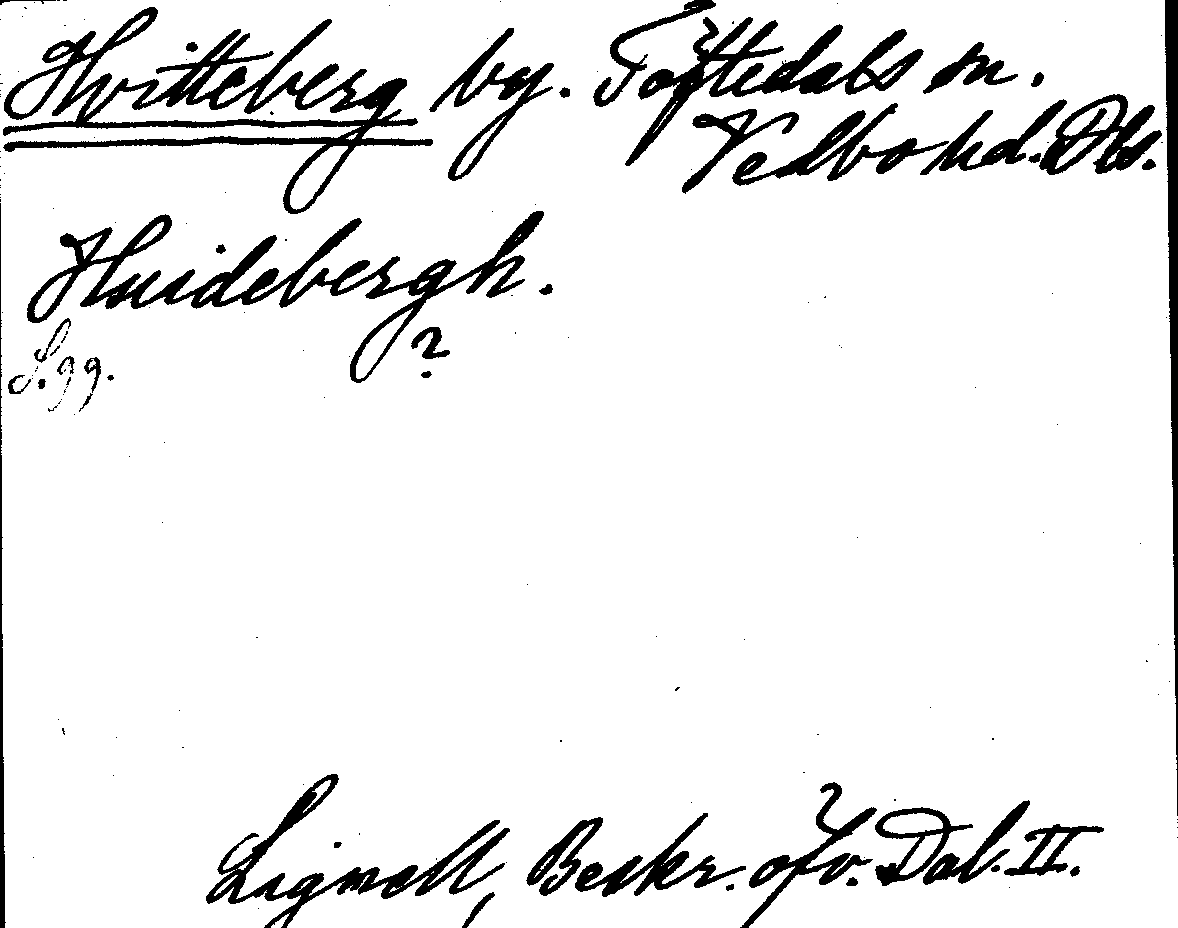 Hvitteberg by. Töftedals sn.
Vedbo hd. Dls.
Huidebergh.
S. 99. ?
Lignell, Beskr. öfv. Dal. II.